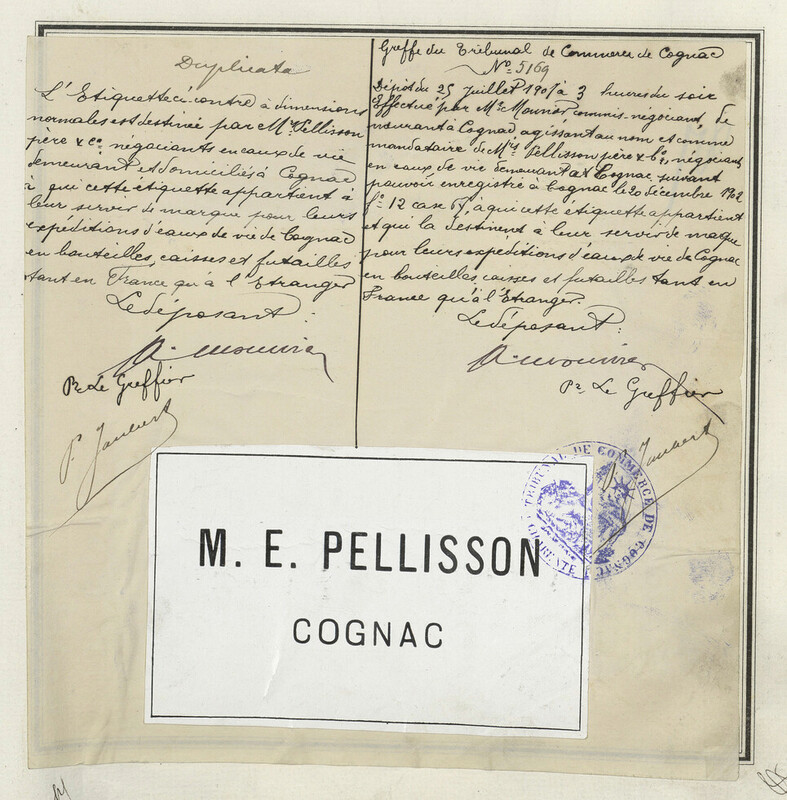 Duplicata
L'Etiquette ci-contre à dimensions
normales est destinée par Mrs Pellisson
père & Co négociants en eaux de vie
demeurant et domiciliés à Cognac
à qui cette étiquette appartient à
leur servir de marque pour leurs
expéditions d'eaux de vie de Cognac
en bouteilles, caisses et futailles
tant en France qu'à l'Etranger
Le déposant :
A. Mounier
Pr. Le Greffier
P. Jaubert
Greffe du Tribunal de Commerce de Cognac
No 5169
Dépôt du 25 juillet à 3 heures du soir
Effectué par Mr commis-négociant de
meurant à Cognac, agissant au nom et comme
mandataire de Mrs Pellisson père & Co, négociants
en eaux de vie demeurant à Cognac suivant
pouvoir enregistré à Cognac le 20 décembre 1902
fo 12 case 6, à qui cette étiquette appartient
et qui la destinent à leur servir de marque
pour leurs expéditions d'eaux de vie de Cognac
en bouteilles, caisses et futailles tant en
France qu'à l'Etranger.
Le déposant :
A. Mounier
Pr. Le Greffier
Jaubert
TRIBUNAL DE COMMERCE DE COGNAC
CHARENTE
M. E. PELLISSON
COGNAC